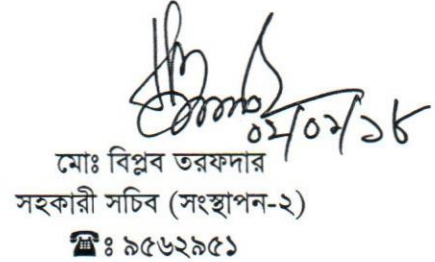 ০২/০২/১৮
মোঃ বিপ্লব তরফদার
সহকারী সচিব (সংস্থাপন-২)
☎ঃ ৯৫৬২৯৫১